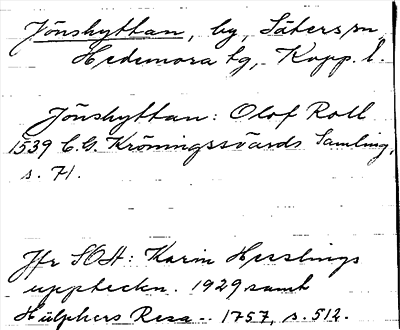 Jönshyttan, by, Säters sn,
Hedemora tg, Kopp. l.
Jönshyttan: Olof Roll
1539 C.G. Kröningssvärds Samling,
s. 71.
Jfr SOH: Karin Hesslings
uppteckn. 1929 samt
Hülphers Resa -- 1757, s. 512.